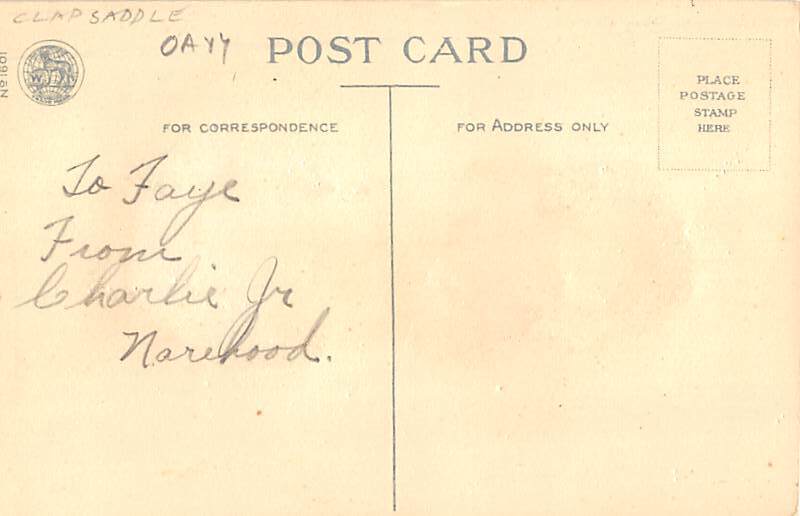 CLAPSADDLE
OAYY
POST CARD
No 1601
W N
PLACE
POSTAGE
STAMP
HERE
FOR CORRESPONDENCE
FOR ADDRESS ONLY
To Faye
From
Charlie Jr
Narehood.